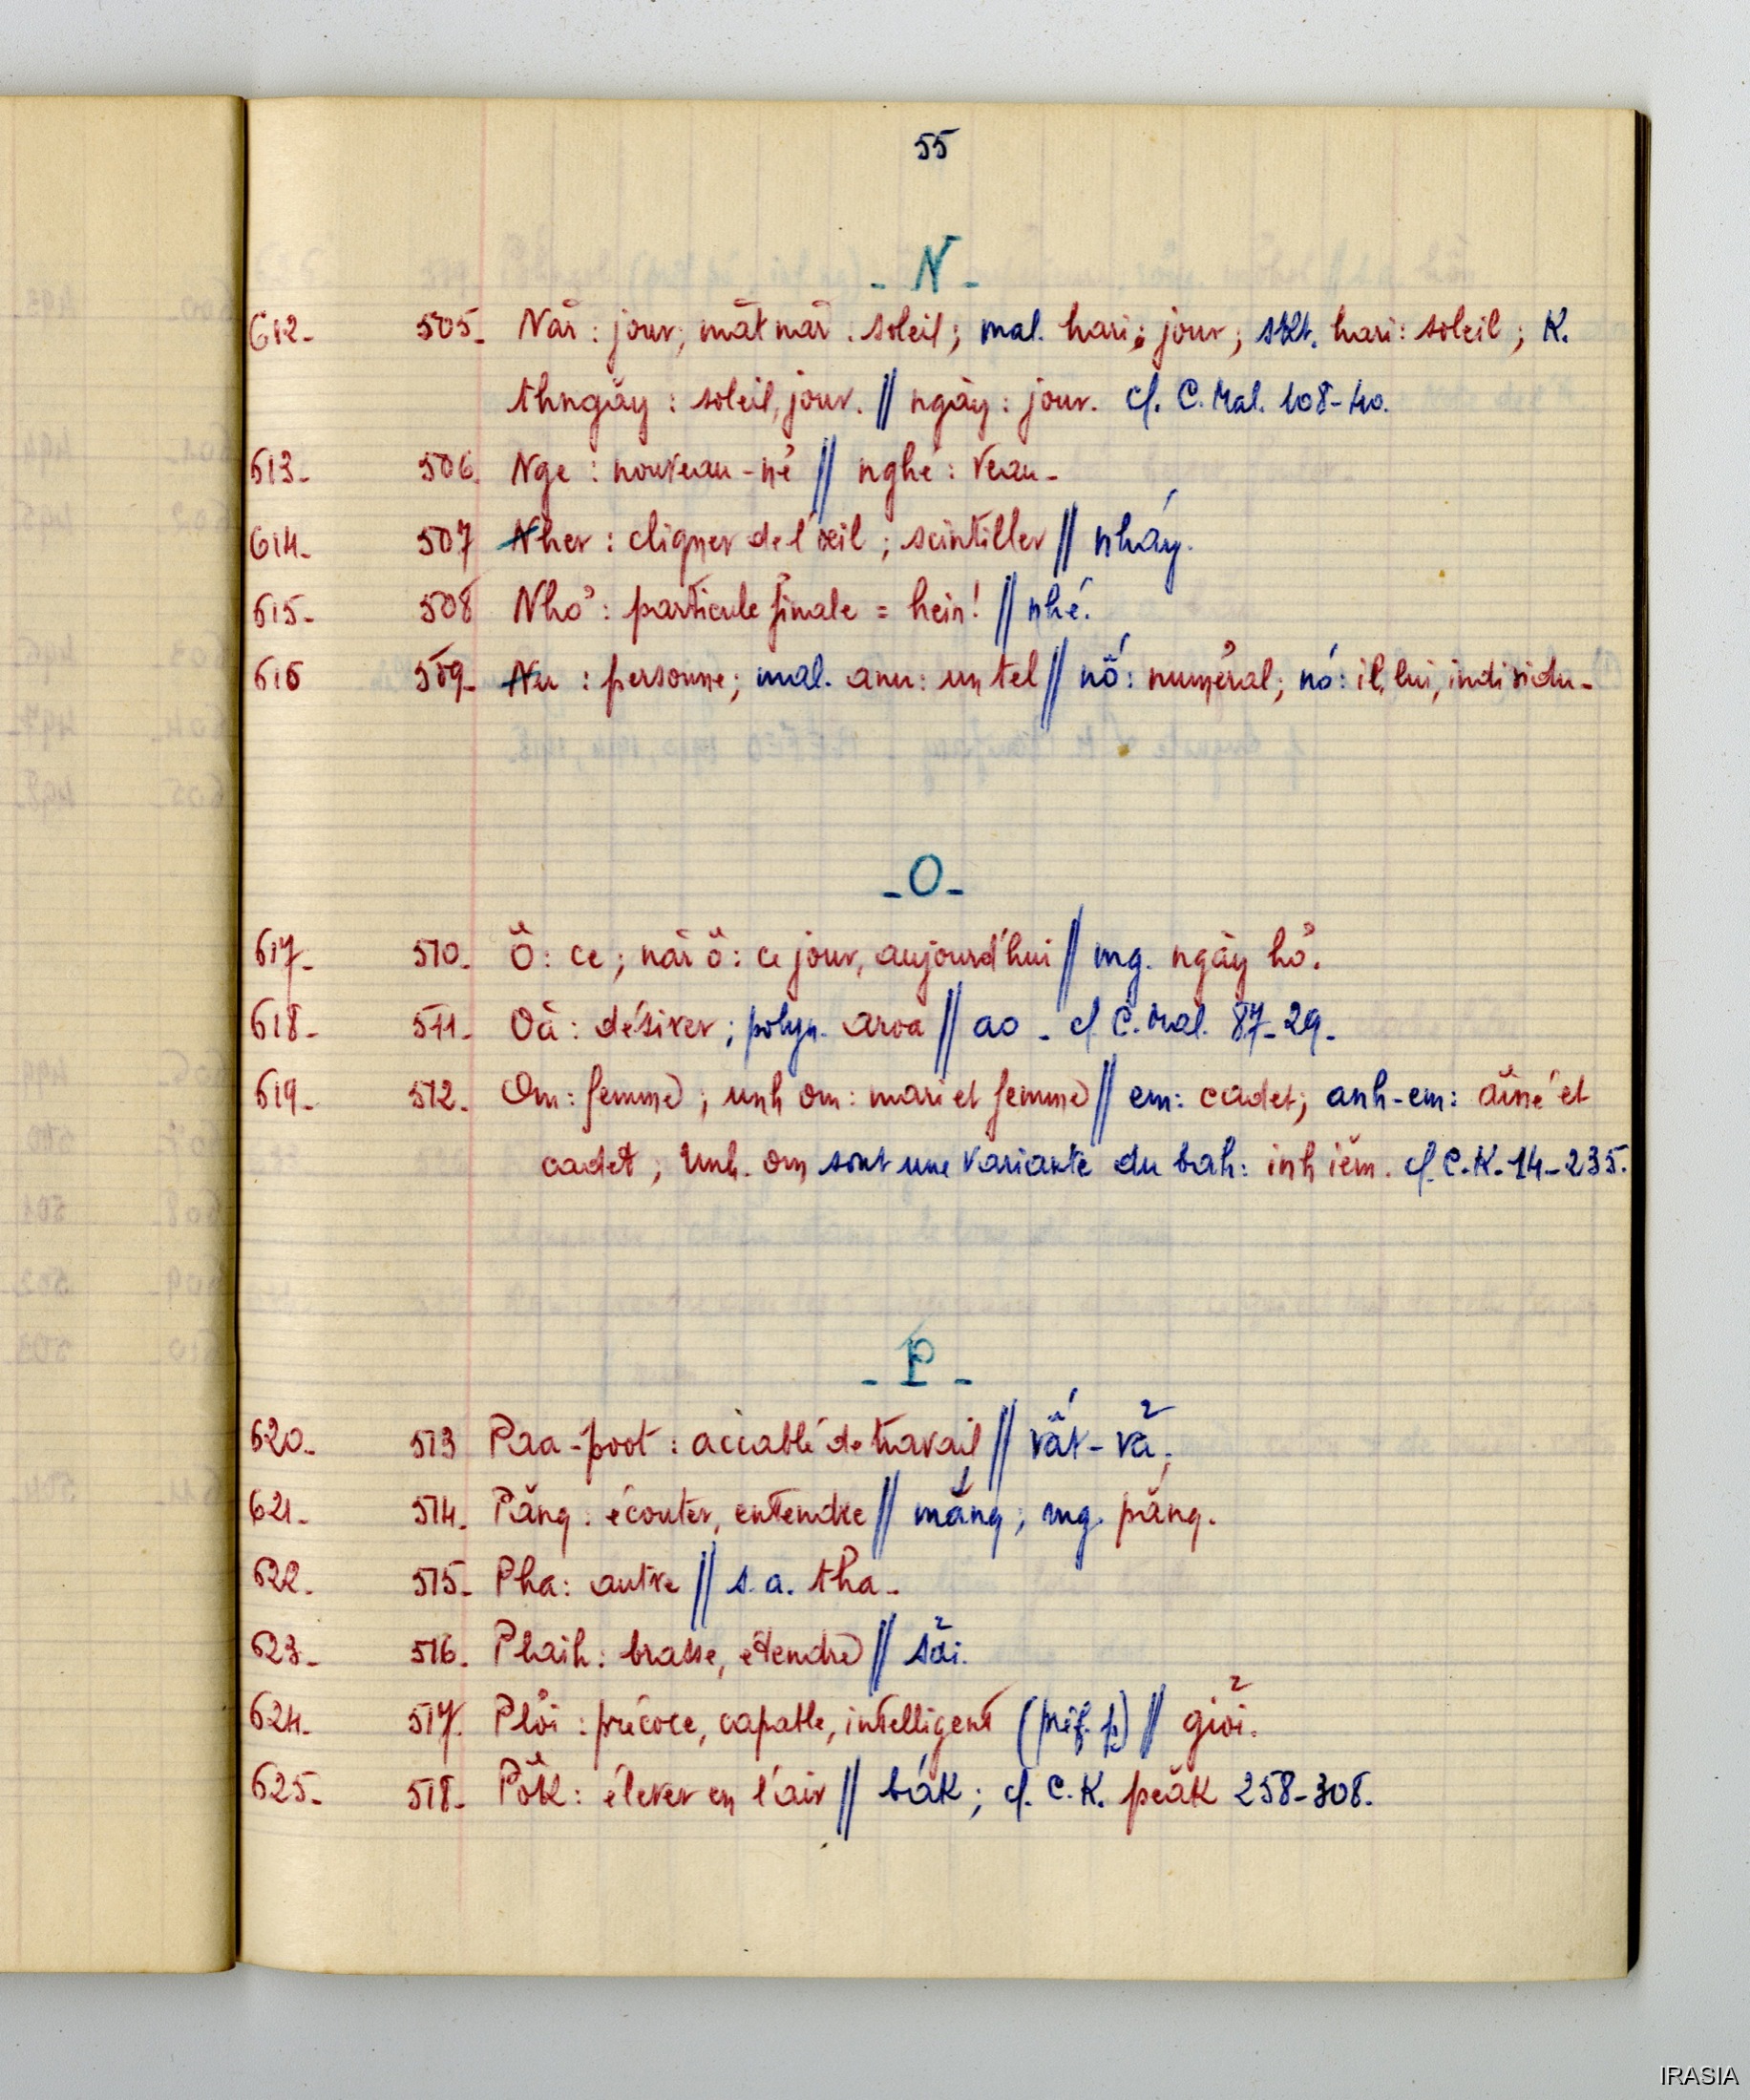 55
- N -
612- 505- Năr : jour; măt năr : soleil; mal. hari : jour; skt. hari : soleil ; K.
thngăy : soleil, jour. // ngày : jour. cf. C. Mal. 108-40.
613- 506. Nge : nouveau-né // nghé : veau-
614- 507 Nher : cligner de l'œil ; scintiller // nháy.
615- 508 Nhơ : particule finale = hein! // nhé.
616 509- Nu : personne; mal. anu : un tel // nố : numéral; nó : il, lui, individu-
- O -
617- 510- Ô : ce ; năr ô : ce jour, aujourd'hui // mg. ngày hô.
618- 511- Oă : désirer ; polyn. aroa // ao - cf C. Mal. 87-29-
619- 512- Om : femme ; unh om : mari et femme // em : cadet; anh-em : aîné et
cadet ; Unh. om sont une variante du bah : inh iĕm. cf. C.K. 14-235.
- P -
620- 513 Paa-poot : accablé de travail // vất-vả;
621- 514- Păng : écouter, entendre // máng ; mg. păng.
622- 515- Pha : autre // s.a. tha-
623- 516- Plaih : brasse, étendre // sải.
624- 517. Plơi : précoce, capable, intelligent (préf. p) // giỏi.
625- 518- Pôk : élever en l'air // bák ; cf. C.K. peăk 258-308.
IRASIA